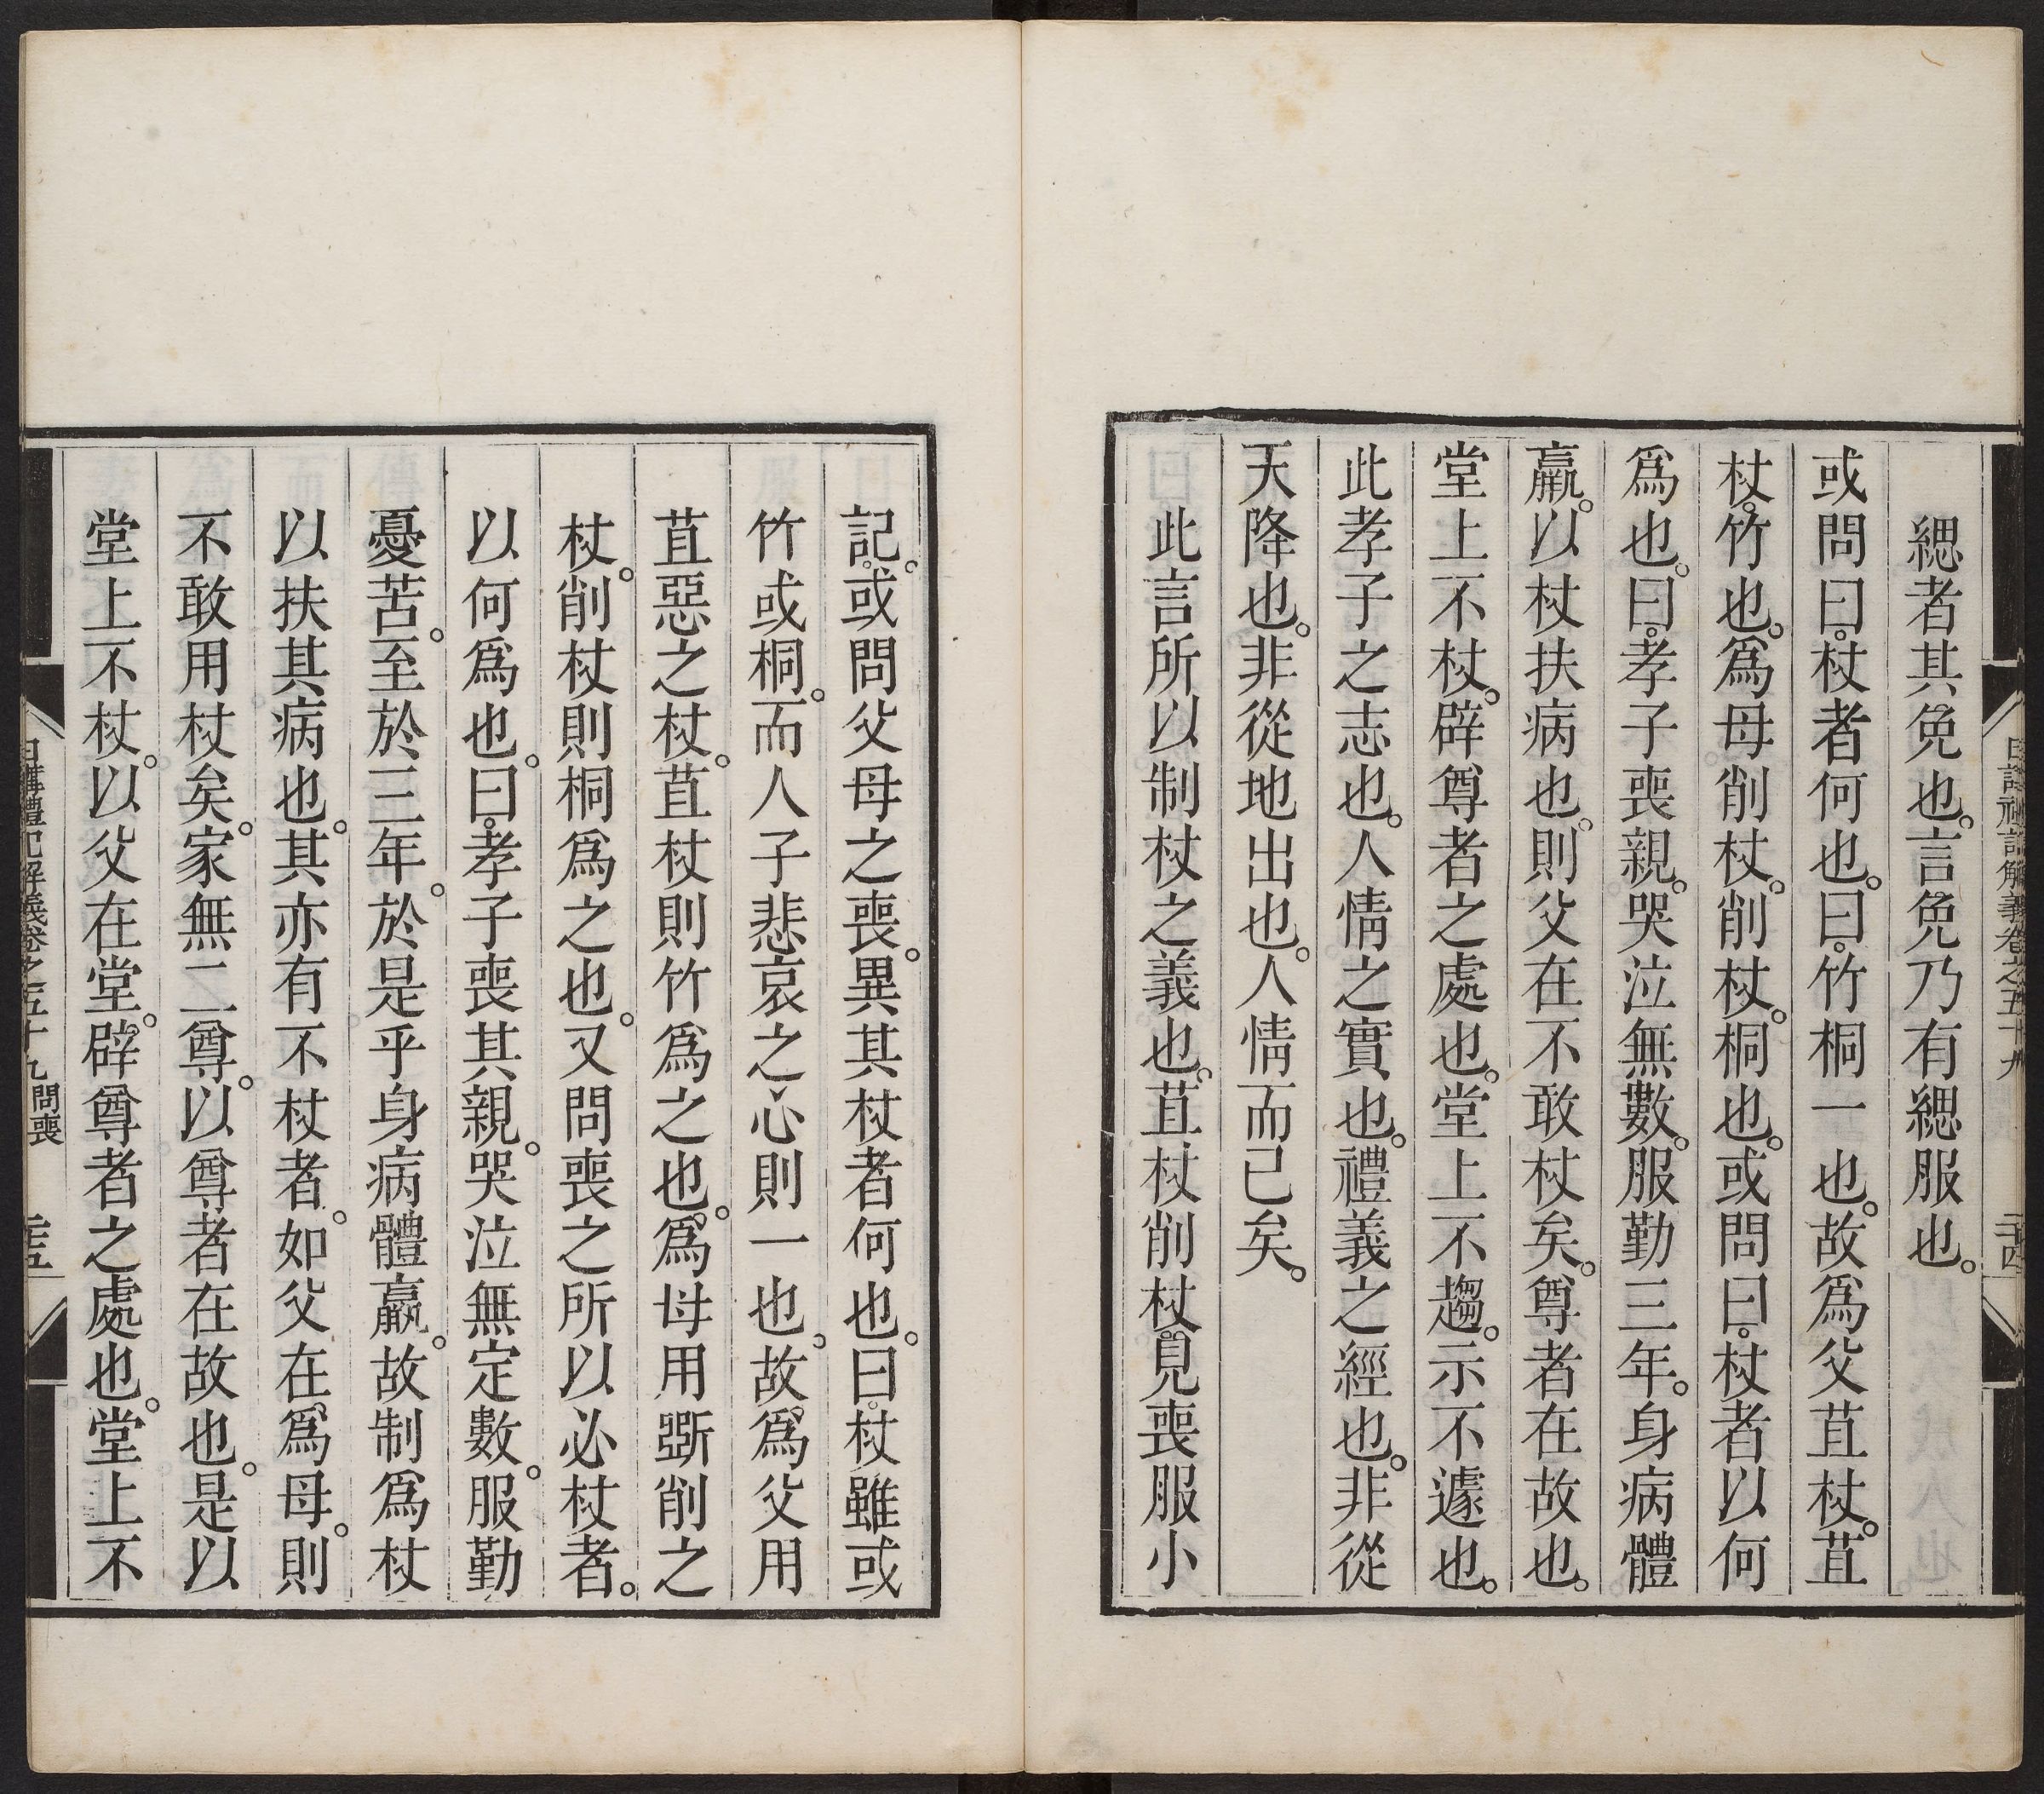 緦者其免也。言免乃有緦服也。
或問曰。杖者何也。曰。竹桐一也。故爲父苴杖。苴
杖。竹也。爲母削杖。削杖。桐也。或問曰。杖者以何
爲也。曰。孝子喪親。哭泣無數。服勤三年。身病體
羸。以杖扶病也。則父在不敢杖矣。尊者在故也。
堂上不杖。辟尊者之處也。堂上不趨。示不遽也。
此孝子之志也。人情之實也。禮義之經也。非從
天降也。非從地出也。人情而已矣。
此言所以制杖之義也。苴杖削杖。見喪服小
日講禮記解義卷之五十九
二十四
記。或問父母之喪。異其杖者何也。曰。杖雖或
竹或桐。而人子悲哀之心則一也。故爲父用
苴惡之杖。苴杖則竹爲之也。爲母用斲削之
杖。削杖則桐爲之也。又問喪之所以必杖者。
以何爲也。曰。孝子喪其親。哭泣無定數。服勤
憂苦。至於三年。於是乎身病體羸。故制爲杖
以扶其病也。其亦有不杖者。如父在。爲母。則
不敢用杖矣。家無二尊。以尊者在故也。是以
堂上不杖。以父在堂。辟尊者之處也。堂上不
日講禮記解義卷之五十九 問喪
二十五